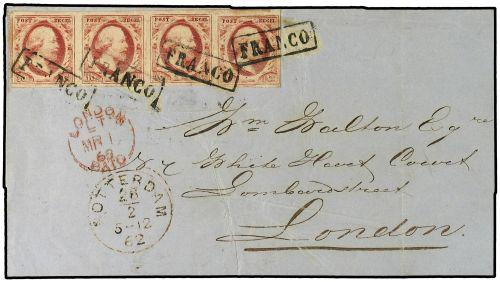 POST ZEGEL POST ZEGEL POST ZEGEL POST ZEGEL
FRANCO FRANCO FRANCO FRANCO
LONDON
MR 1
62
PAID
ROTTERDAM
2
5-12
62
Wm Walton Esqre
White Hart Court
Lombardstreet
London.